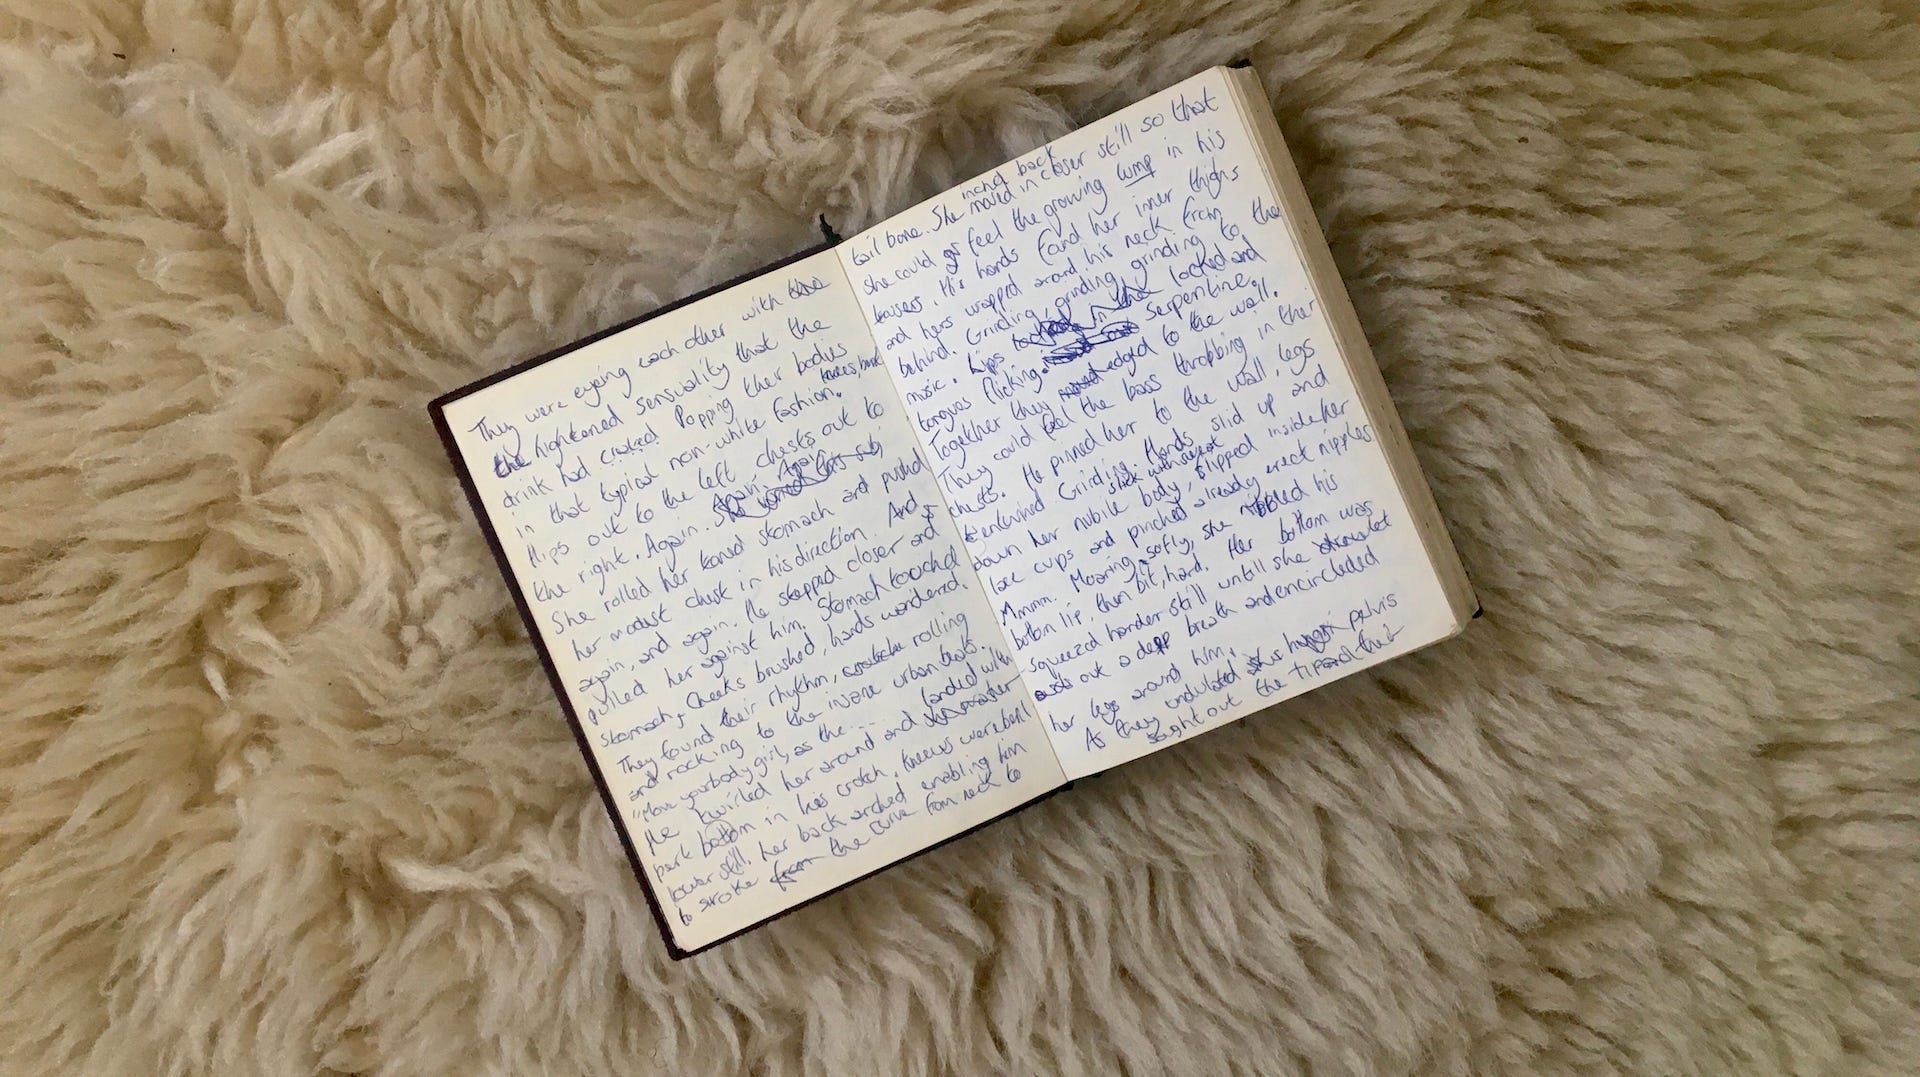 They were eyeing each other with
the hightened sensuality that the
drink had created. Popping their bodies
in that typical non-white fashion. knees, bend
Hips out to the left, chests out to
the right. Again. Again. Again.
She rolled her toned stomach and pushed
her modest chest in his direction. And
again, and again. He stepped closer and
pulled her against him. Stomach touched
stomach, cheeks brushed, hands wandered.
They found their rhythm, rolling
and rocking to the insane urban beats.
"Move your body girl, as the.....
He twirled her around and landed with
pert bottom in his crotch, knees were bent
lower still, her back arched enabling him
to stroke from the curve from neck to
tail bone. She inched back moved in closer still so that
she could feel the growing lump in his
trousers. His hands found her inner thighs
and hers wrapped around his neck from
behind. Grinding, grinding, grinding to the
music. Lips locked and
tongues flicking. serpentine.
Together they edged to the wall.
They could feel the bass throbbing in their
chests. He pinned her to the wall, legs
entwined. Grinding. Hands slid up and
down her nubile body, slick with sweat slipped inside her
lace cups and pinched already erect nipples.
Mmmm. Moaning softly, she nibbled his
bottom lip, then bit, hard. Her bottom was
squeezed harder still until she
out a deep breath and encircled
her legs around him.
As they undulated pelvis
sought out the tip and the